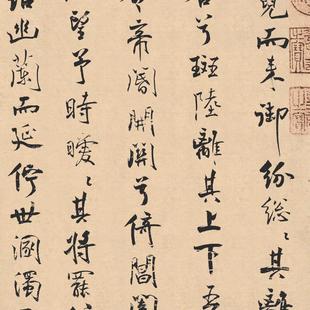 而来御紛総々其離
兮斑陸離其上下吾
帝閽開關兮倚閶闔
望予時曖々其将罷
幽蘭而延佇世溷濁而